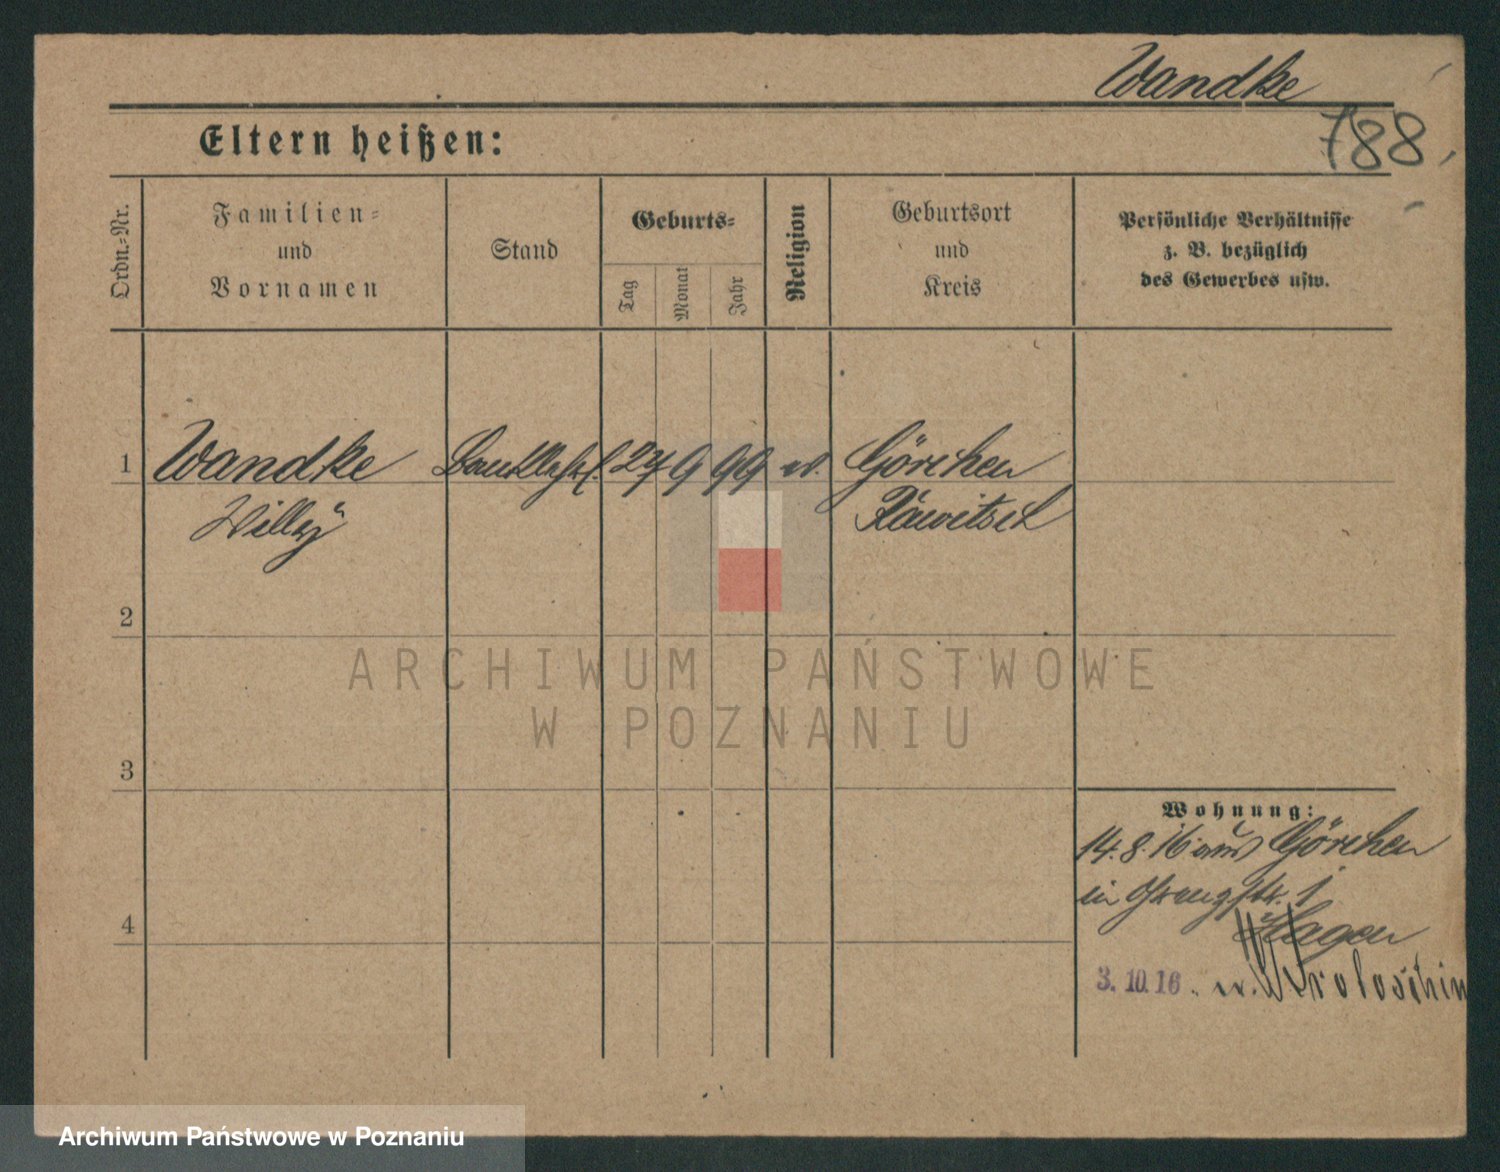 Wandke
788
Eltern heißen:
Ordn.-Nr.
Familien-
und
Vornamen
Stand
Geburts-
Tag
Monat
Jahr
Religion
Geburtsort
und
Kreis
Persönliche Verhältnisse
z. B. bezüglich
des Gewerbes usw.
1 Wandke 27 9 99 ev. Görchen
Willy Rawitsch
2
ARCHIWUM PAŃSTWOWE
W POZNANIU
3
Wohnung:
14.8.16 aus Görchen
in 1
4
Hagen
3.10.16 n. Krotoschin
Archiwum Państwowe w Poznaniu